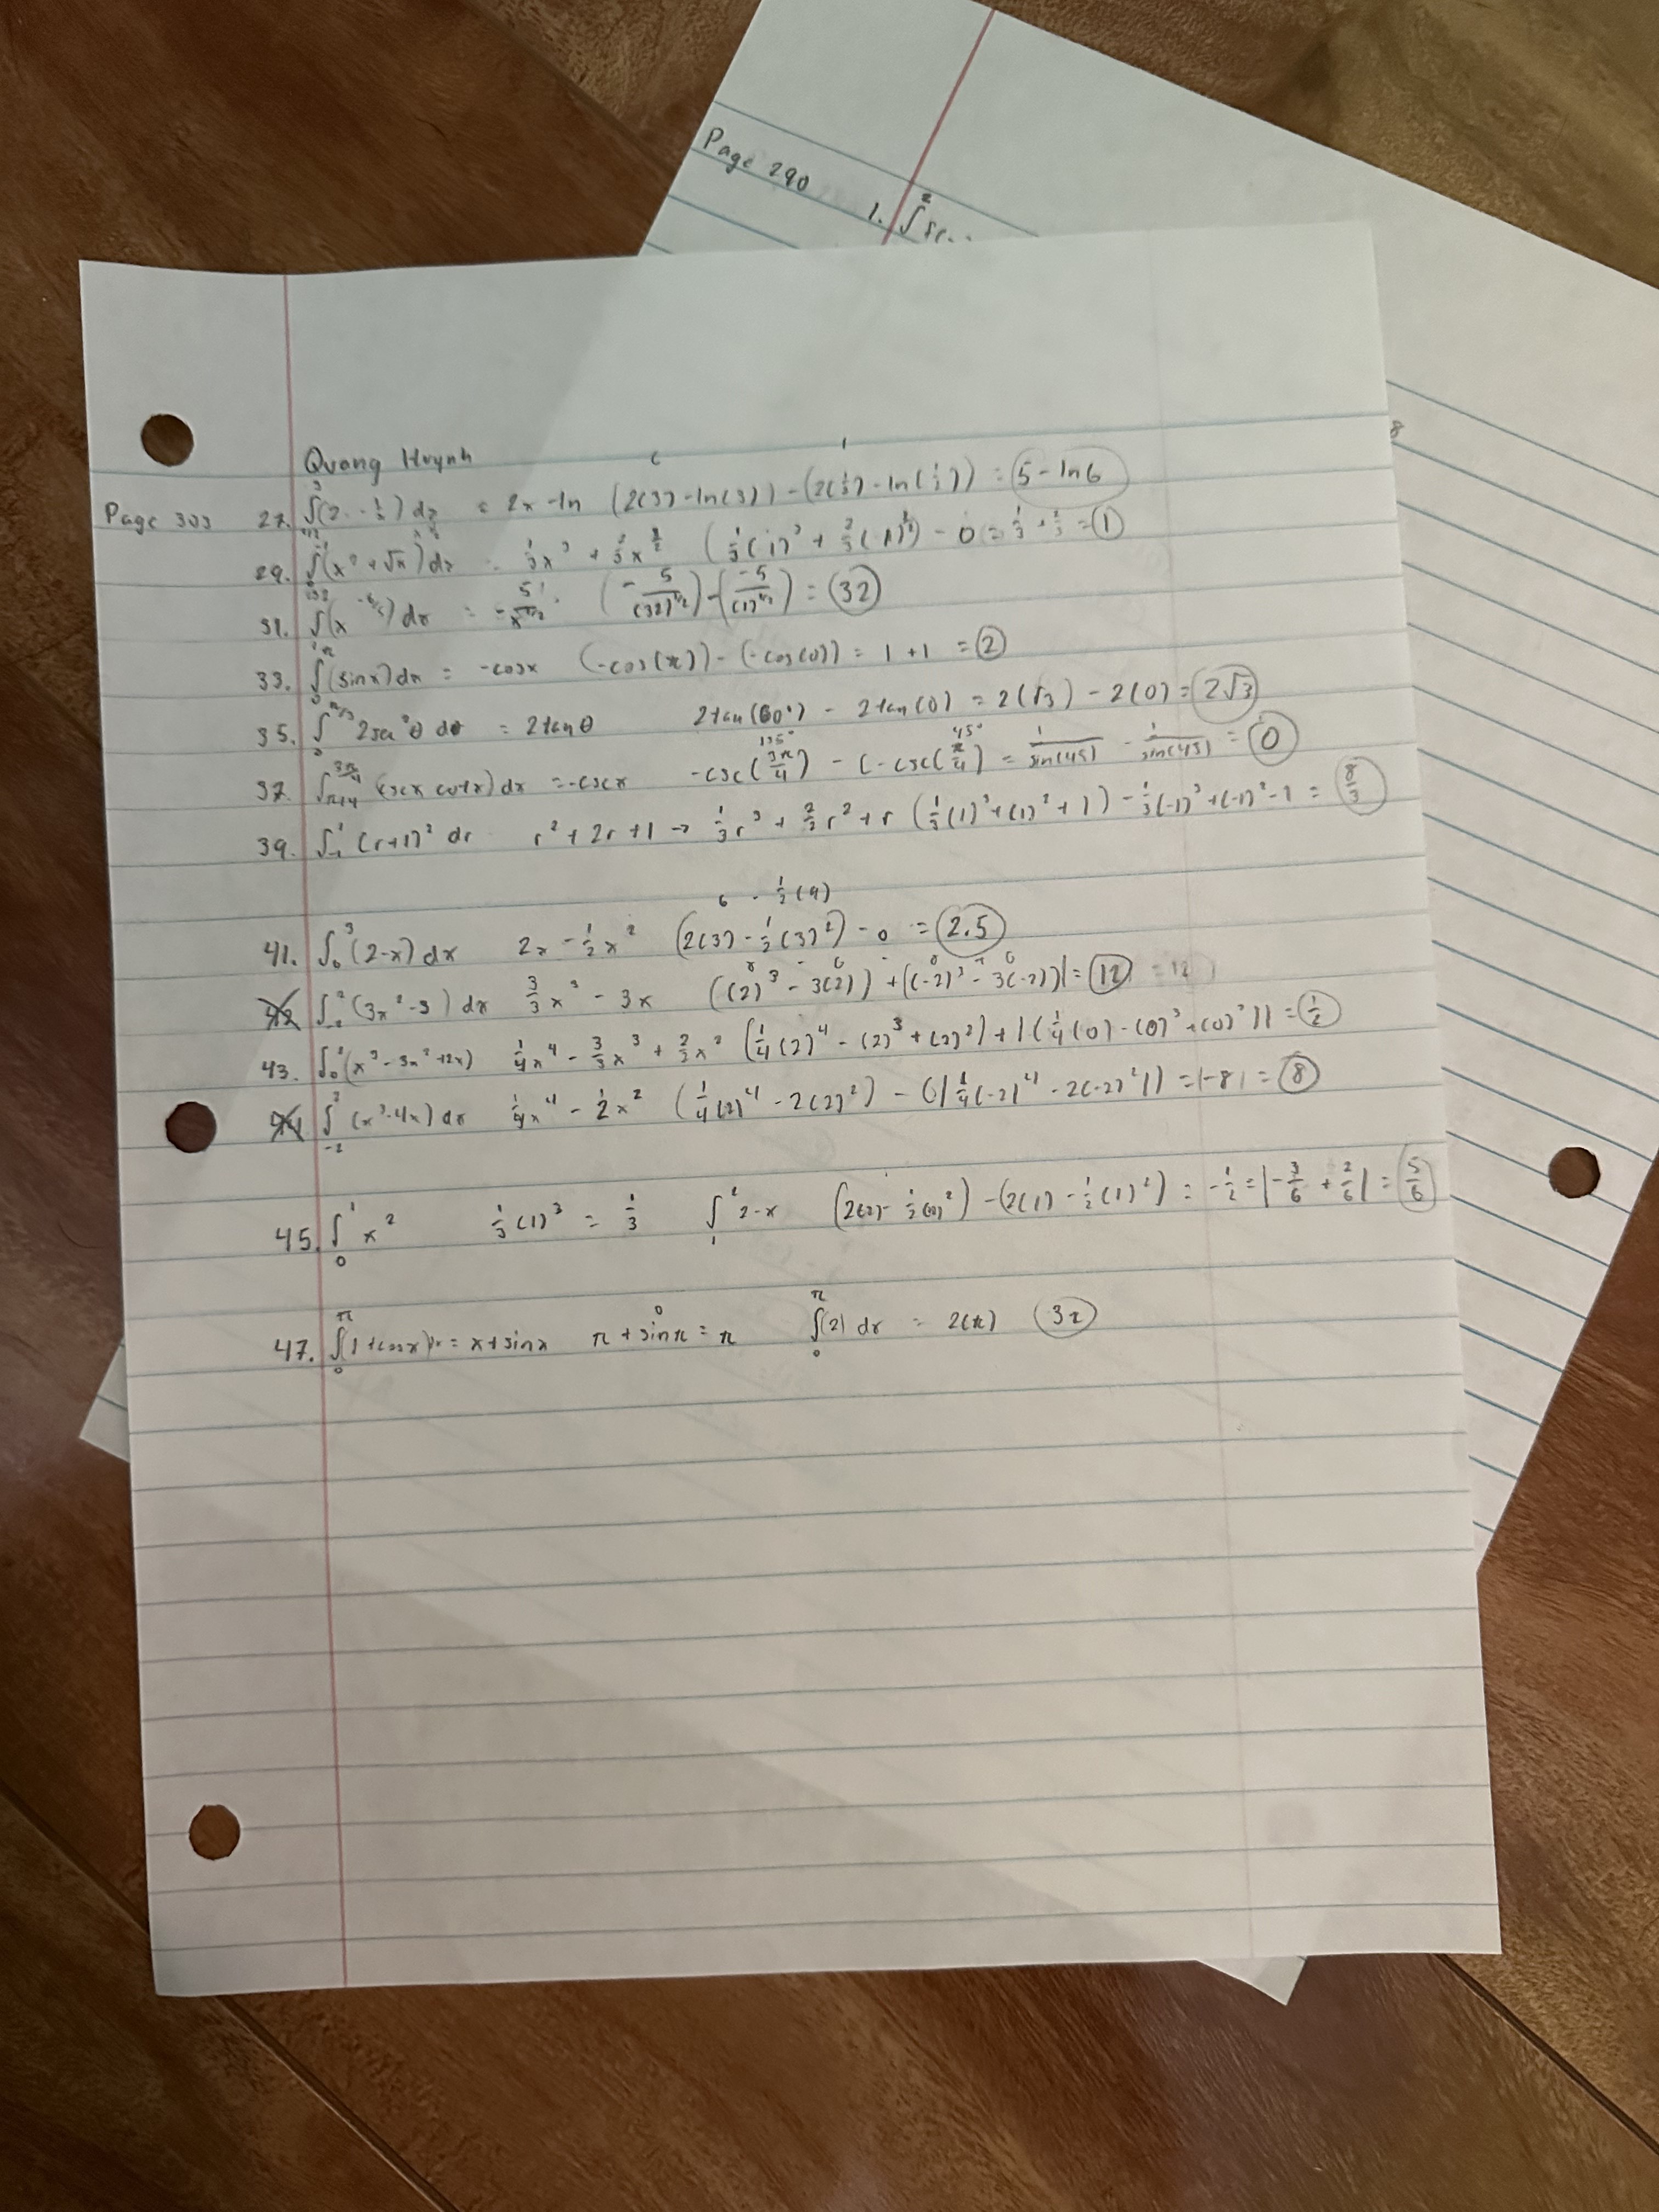 Page 290
1. ∫²
8
Quang Huynh
Page 303 27. ∫(2 - 1/x) dx = 2x - ln (2(3) - ln(3)) - (2(1/2) - ln(1/2)) = 5 - ln6
29. ∫(x² + √x) dx = 1/3 x³ + 2/3 x^3/2 (1/3(1)³ + 2/3(1)^3/2) - 0 = 1/3 + 2/3 = 1
31. ∫(x^-6/5) dx = -5/ (-5/(32) ) - (-5/(1) ) = 32
33. ∫(sinx) dx = -cosx (-cos(π)) - (-cos(0)) = 1 + 1 = 2
35. ∫₀^π/3 2sec²θ dθ = 2tanθ 2tan(60°) - 2tan(0) = 2(√3) - 2(0) = 2√3
135° 45°
37. ∫π/4^3π/4 (cscx cotx) dx = -cscx -csc(3π/4) - (-csc(π/4) = 1/sin(45) - 1/sin(45) = 0
39. ∫₋₁¹ (r+1)² dr r² + 2r + 1 → 1/3 r³ + 2/2 r² + r (1/3(1)³ + (1)² + 1) - 1/3(-1)³ + (-1)² - 1 = 8/3
6 - 1/2(9)
41. ∫₀³ (2-x) dx 2x - 1/2 x² (2(3) - 1/2(3)²) - 0 = 2.5
∫₋₂² (3x² - 3) dx 3/3 x³ - 3x ((2)³ - 3(2)) + |(-2)³ - 3(-2))| = 12 = 12
43. ∫₀²(x³ - 3x² + 2x) 1/4 x⁴ - 3/3 x³ + 2/2 x² (1/4(2)⁴ - (2)³ + (2)²) + |(1/4(0) - (0)³ + (0)²)| = 1/2
∫₋₂² (x³ - 4x) dx 1/4 x⁴ - 2x² (1/4(2)⁴ - 2(2)²) - (|1/4(-2)⁴ - 2(-2)²|) = |-8| = 8
45. ∫₀¹ x² 1/3(1)³ = 1/3 ∫₁² 2-x (2(2) - 1/2(2)²) - (2(1) - 1/2(1)²) = -1/2 = |-3/6 + 2/6| = 5/6
47. ∫₀^π (1 + cosx) dx = x + sinx π + sinπ = π ∫₀^π (2) dx = 2(π) 3π